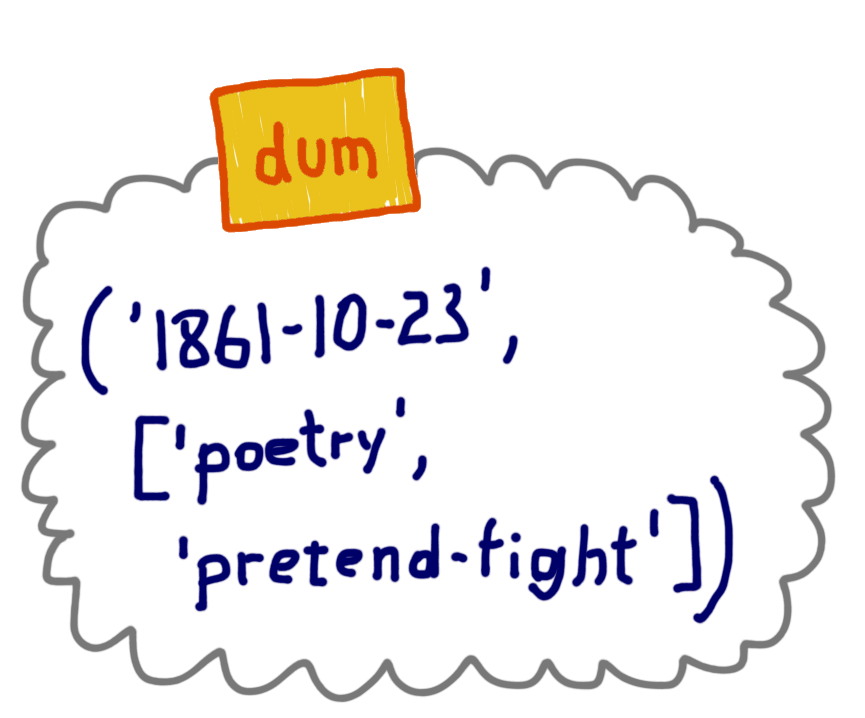 dum
('1861-10-23',
['poetry',
'pretend-fight'])